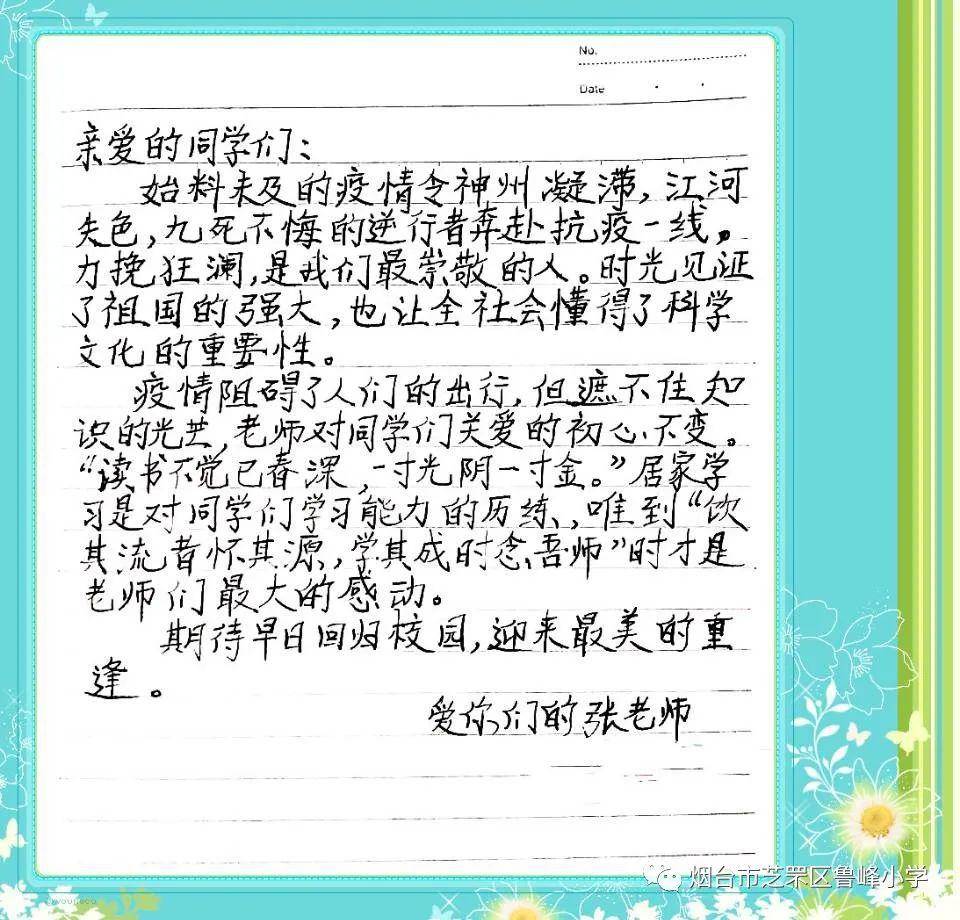 No.
Date
亲爱的同学们：
始料未及的疫情令神州凝滞，江河
失色，九死不悔的逆行者奔赴抗疫一线。
力挽狂澜，是我们最崇敬的人。时光见证
了祖国的强大，也让全社会懂得了科学
文化的重要性。
疫情阻碍了人们的出行，但遮不住知
识的光芒，老师对同学们关爱的初心不变。
“读书不觉已春深，一寸光阴一寸金。”居家学
习是对同学们学习能力的历练，唯到“饮
其流者怀其源，学其成时念吾师”时才是
老师们最大的感动。
期待早日回归校园，迎来最美的重
逢。
爱你们的张老师
烟台市芝罘区鲁峰小学